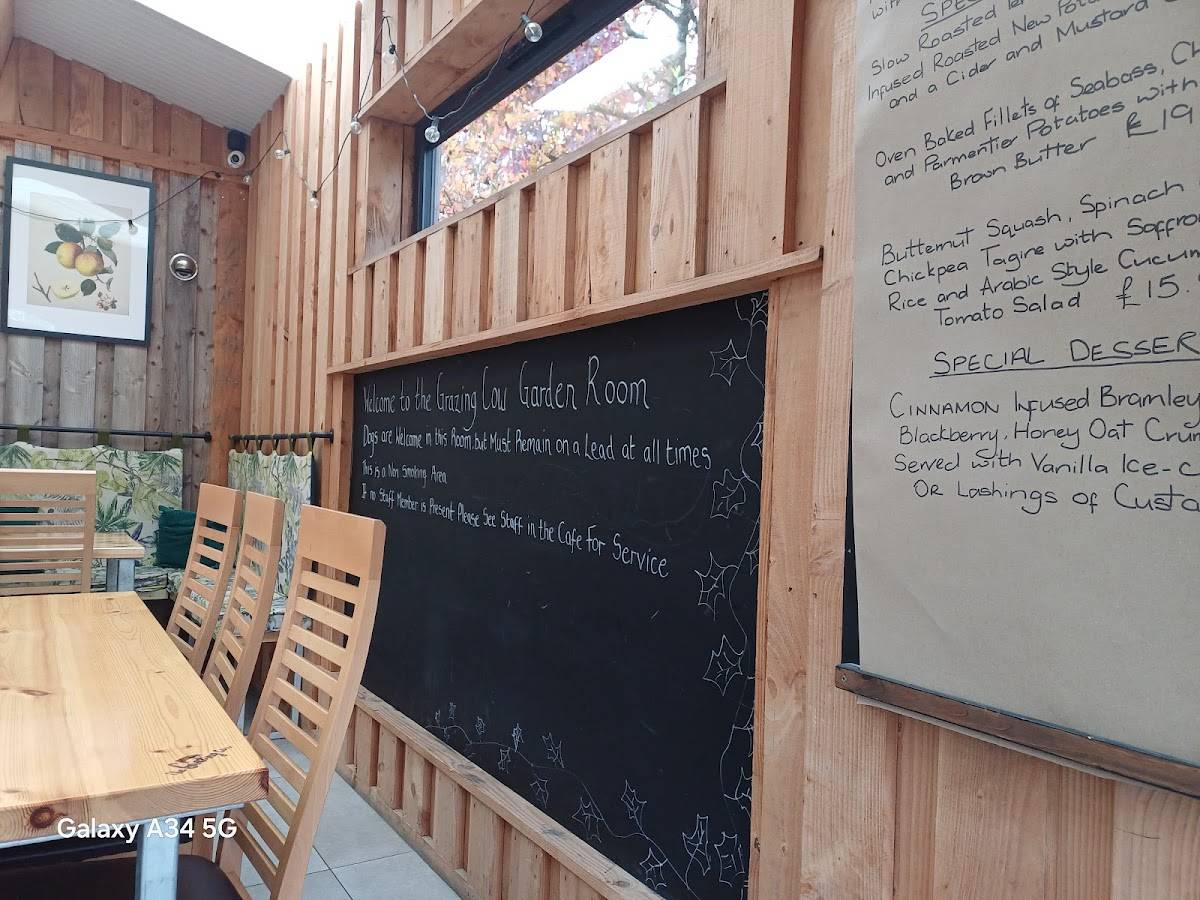 Welcome to the Grazing Cow Garden Room
Dogs are Welcome in this Room but Must Remain on a Lead at all times
This is a Non Smoking Area
If no Staff Member is Present Please See Staff in the Cafe For Service
with
SPEC
Slow Roasted
Infused Roasted New Pota
and a Cider and Mustard
Oven Baked Fillets of Seabass, Ch
and Parmentier Potatoes with
Brown Butter £19
Butternut Squash, Spinach
Chickpea Tagine with Saffro
Rice and Arabic Style Cucum
Tomato Salad £15.
SPECIAL DESSER
CINNAMON Infused Bramley
Blackberry, Honey Oat Crum
Served with Vanilla Ice-c
OR Lashings of Custa
Galaxy A34 5G